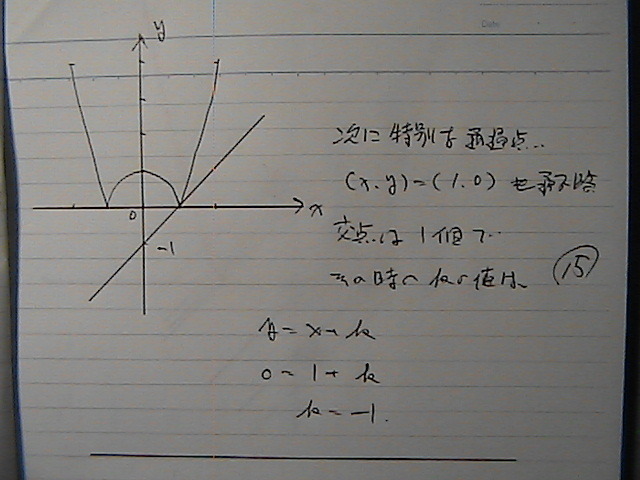 Date
y
次に 特別な 通過点…
(x.y)=(1.0) を
交点は 1個で…
その時の kの値は、
⑮
x
0
-1
y = x + k
0 = 1 + k
k = -1.